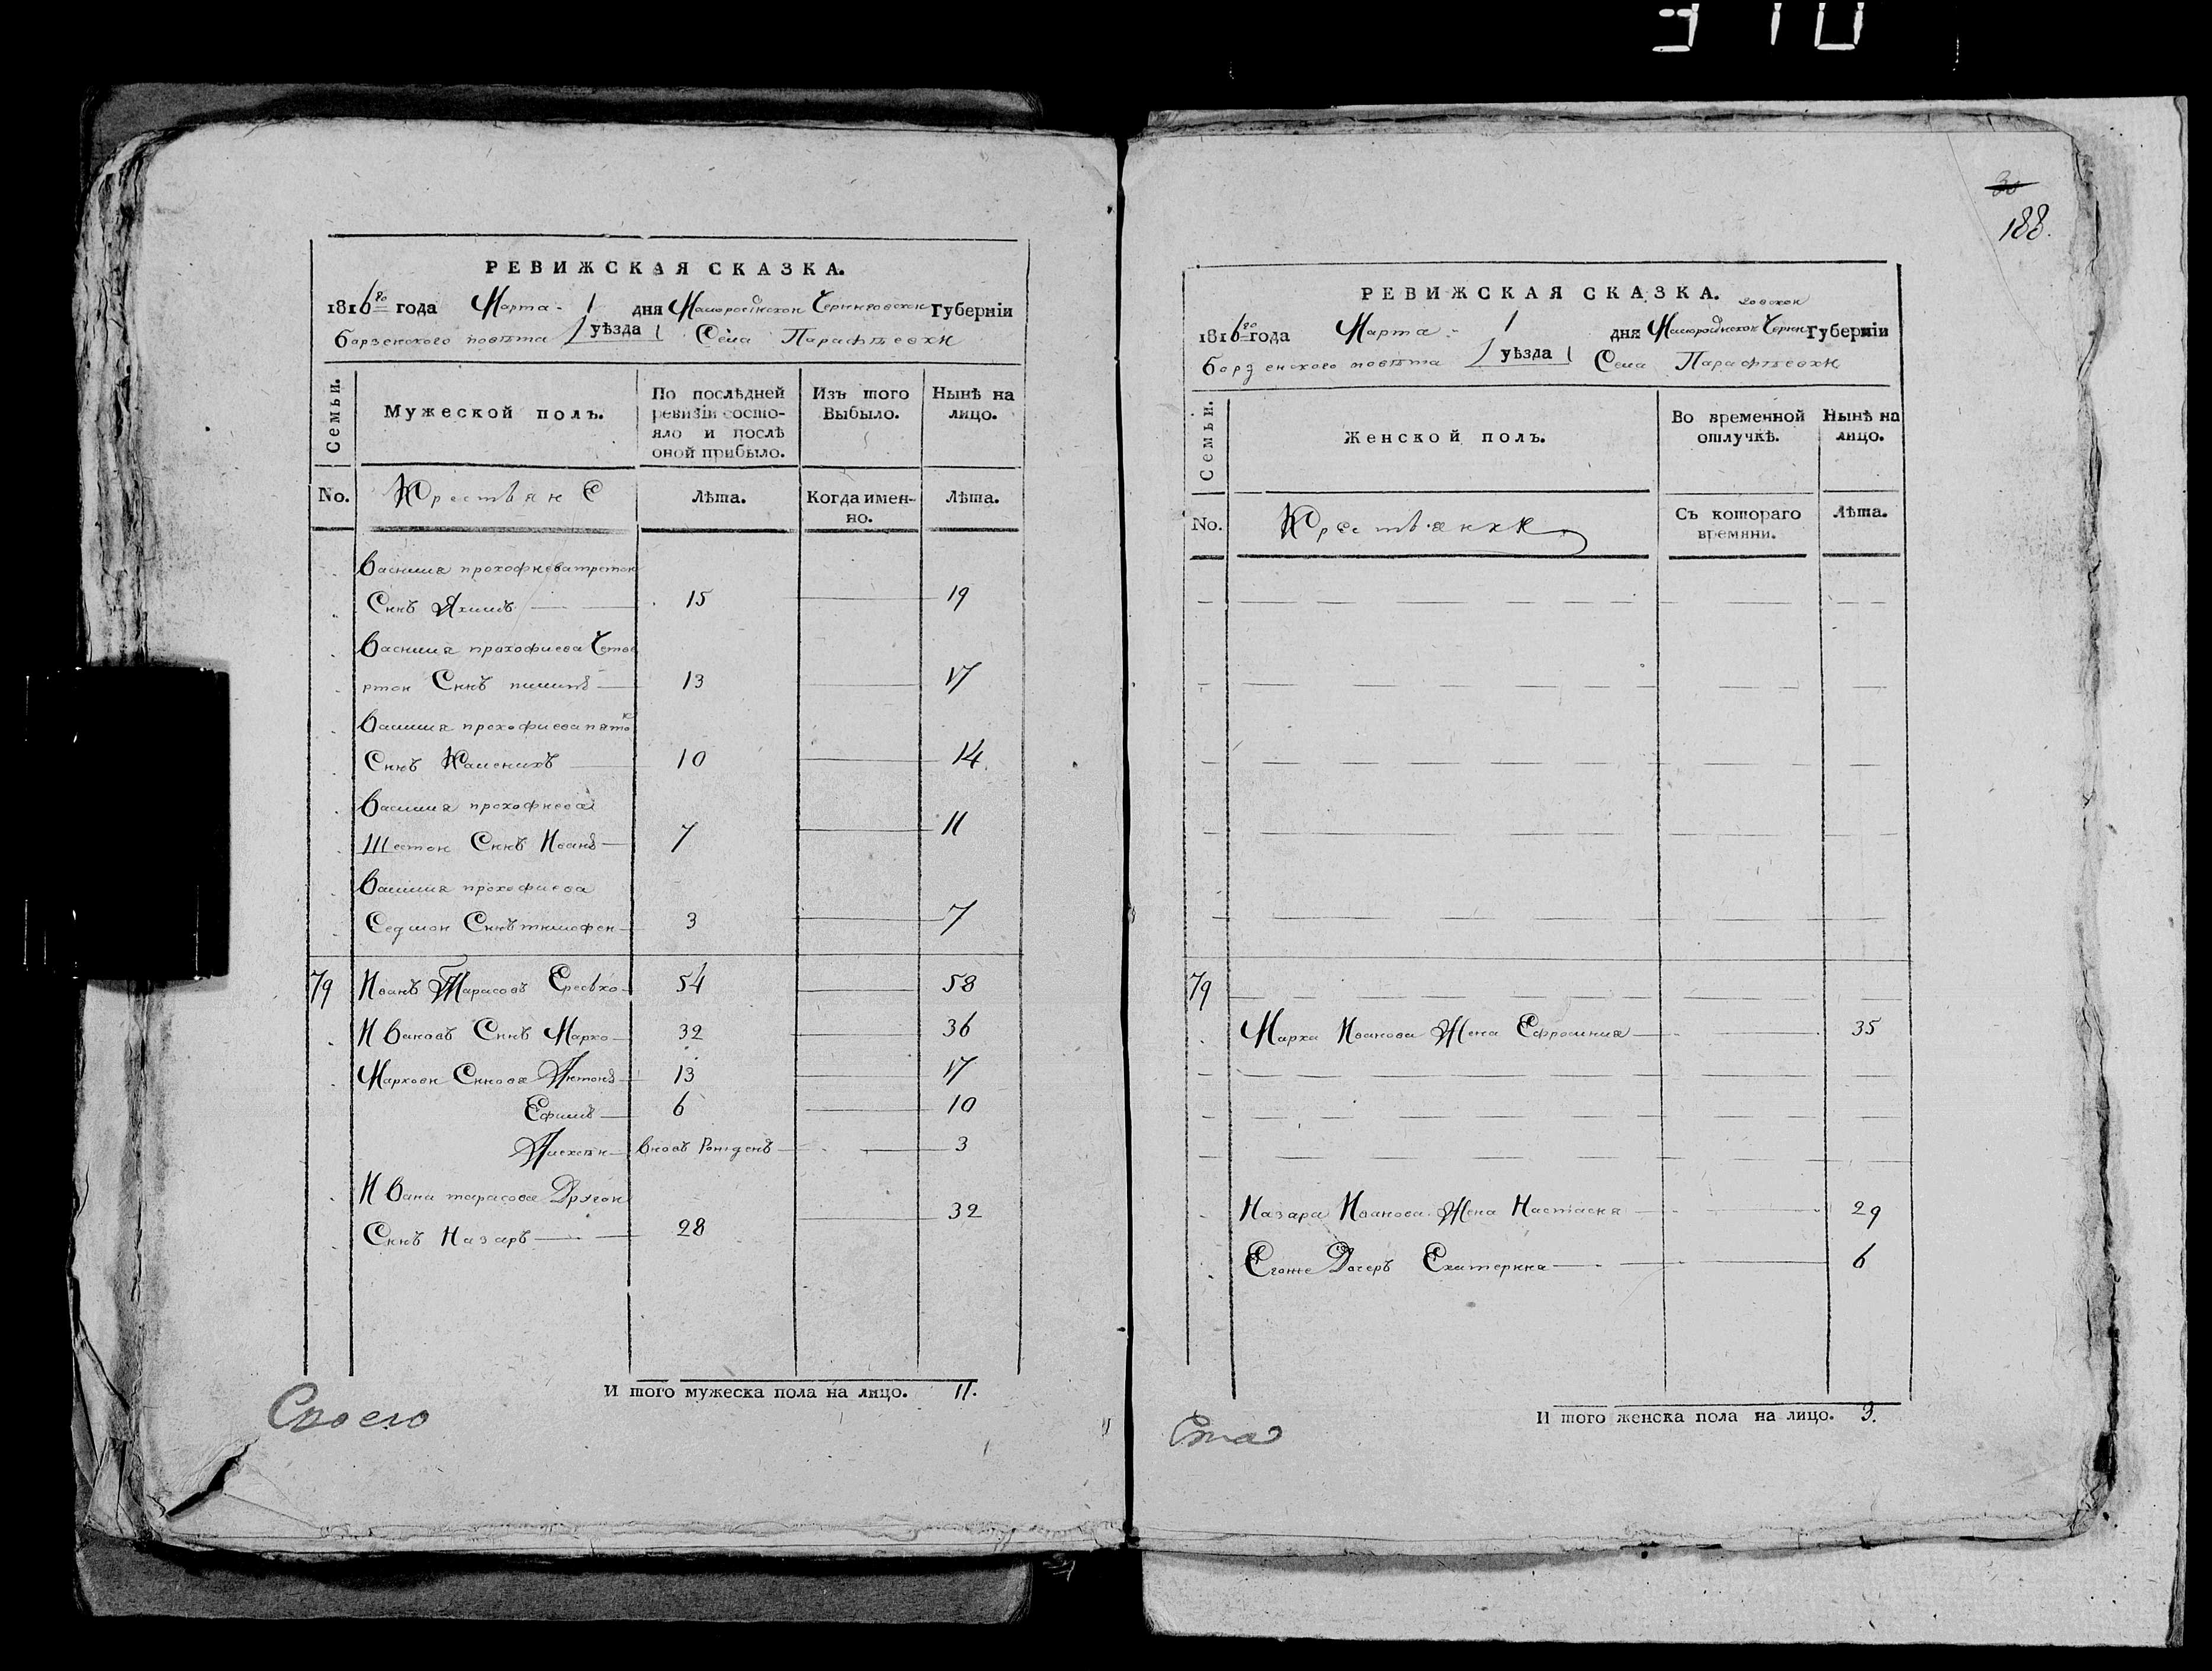 310
РЕВИЖСКАЯ СКАЗКА.
1816го года Марта 1 дня Малоросійской Черниговской Губерніи
борзенского повѣта уѣзда Села Парафѣевки
Семьи. Мужеской полъ. По послѣдней ревизіи состояло и послѣ оной прибыло. Изъ того Выбыло. Нынѣ на лицо.
No. Крестьянѣ Лѣта. Когда именно. Лѣта.
Василия прокофиева третой
Снъ Яхимъ 15 19
Василия прокофиева Четве
ртой Снъ пилипъ 13 17
Василия прокофиева пятой
Снъ Каленикъ 10 14
Василия прокофиева
Шестой Снъ Иванъ 7 11
Василия прокофиева
Седмой Снъ тимофей 3 7
79 Иванъ Тарасовъ 54 58
Ивановъ Снъ Марко 32 36
Маркови Снновя Антонъ 13 17
Ефимъ 6 10
Алексѣй вновь Рожденъ 3
Ивана тарасова Другой
Снъ Назаръ 28 32
И того мужеска пола на лицо. 11.
30
188.
РЕВИЖСКАЯ СКАЗКА.
1816го года Марта 1 дня Малоросійской Черниговской Губерніи
борзенского повѣта уѣзда Села Парафѣевки
Семьи. Женской полъ. Во временной отлучкѣ. Нынѣ на лицо.
No. Крестьянки Съ котораго времяни. Лѣта.
79
Марка Иванова Жена Ефросиния 35
Назара Иванова Жена Настасия 29
Егоже Дочеръ Екатерина 6
И того женска пола на лицо. 3.